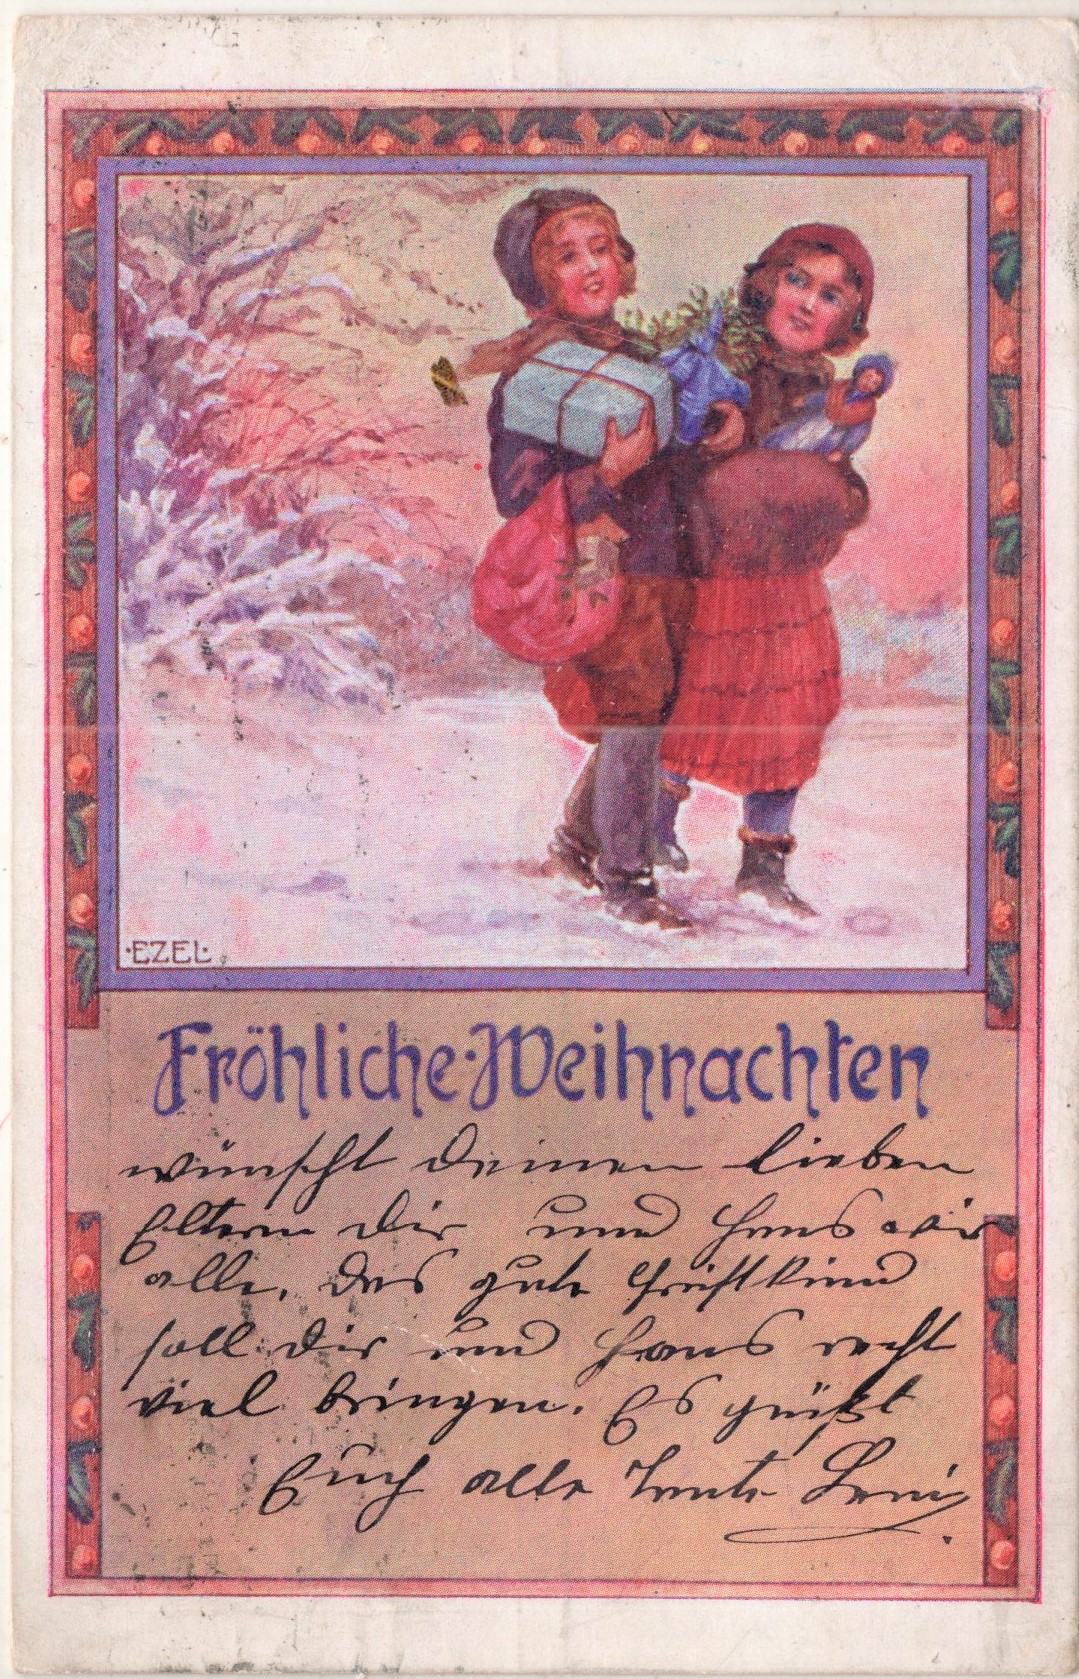 ·EZEL·
Fröhliche·Weihnachten
wünscht deinen lieben
Eltern dir und Hans wir
alle. Das gute Christkind
soll dir und Hans recht
viel bringen. Es grüßt
Euch alle Tante